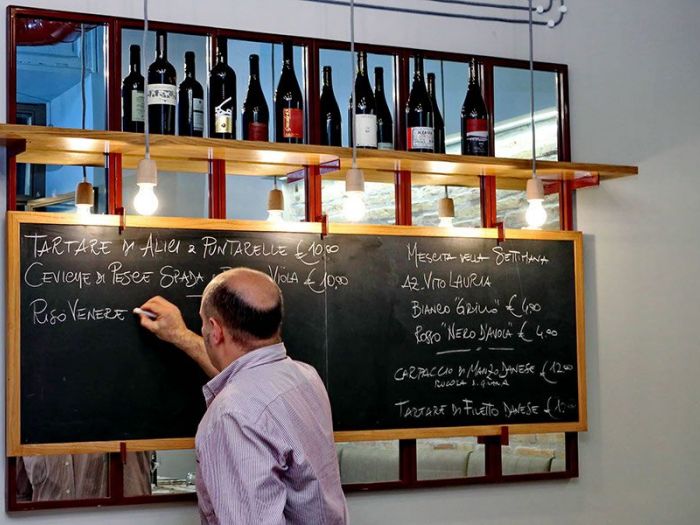 TARTARE DI ALICI e PUNTARELLE € 10,90
CEVICHE DI PESCE SPADA VIOLA € 10,90
RISO VENERE
MESCITA DELLA SETTIMANA
AZ. VITO LAURIA
BIANCO "GRILLO" € 4,90
ROSSO "NERO D'AVOLA" € 4,90
CARPACCIO DI MANZO DANESE € 12,90
RUCOLA
TARTARE DI FILETTO DANESE €